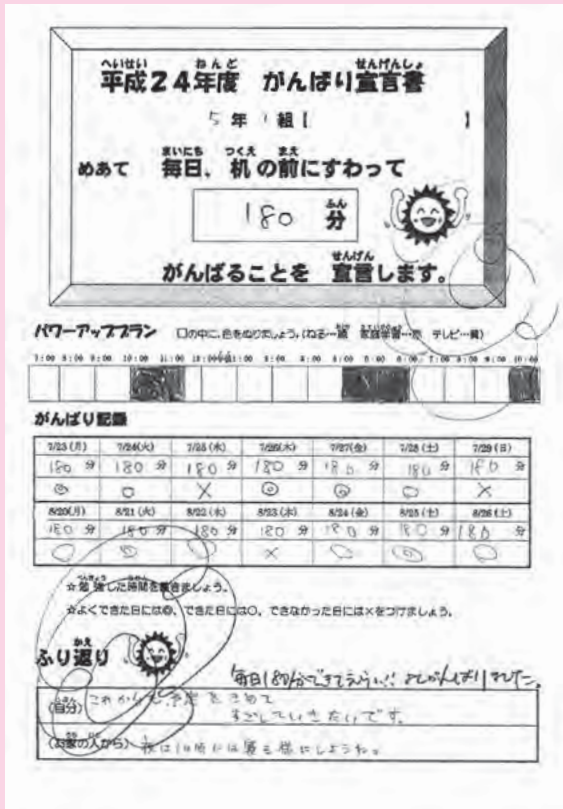 平成24年度 がんばり宣言書
5年1組【 】
めあて 毎日、机の前にすわって
180分
がんばることを 宣言します。
パワーアッププラン □の中に、色をぬりましょう。(ねる…
がんばり記録
7/23(月) 7/24(火) 7/25(水) 7/26(木) 7/27(金) 7/28(土) 7/29(日)
180分 180分 180分 180分 180分 180分 180分
◎ ○ × ◎ ◎ ○ ×
8/20(月) 8/21(火) 8/22(水) 8/23(木) 8/24(金) 8/25(土) 8/26(土)
180分 180分 180分 180分 180分 180分 180分
○ ◎ ○ × ○ ◎ ○
☆勉強した時間を書きましょう。
☆よくできた日には◎、できた日には○、できなかった日には×をつけましょう。
ふり返り
毎日180分できてえらい!! よくがんばりました。
(自分) これからも予定をきめて
すごしていきたいです。
(お家の人から) 夜は10時には寝る様にしようね。